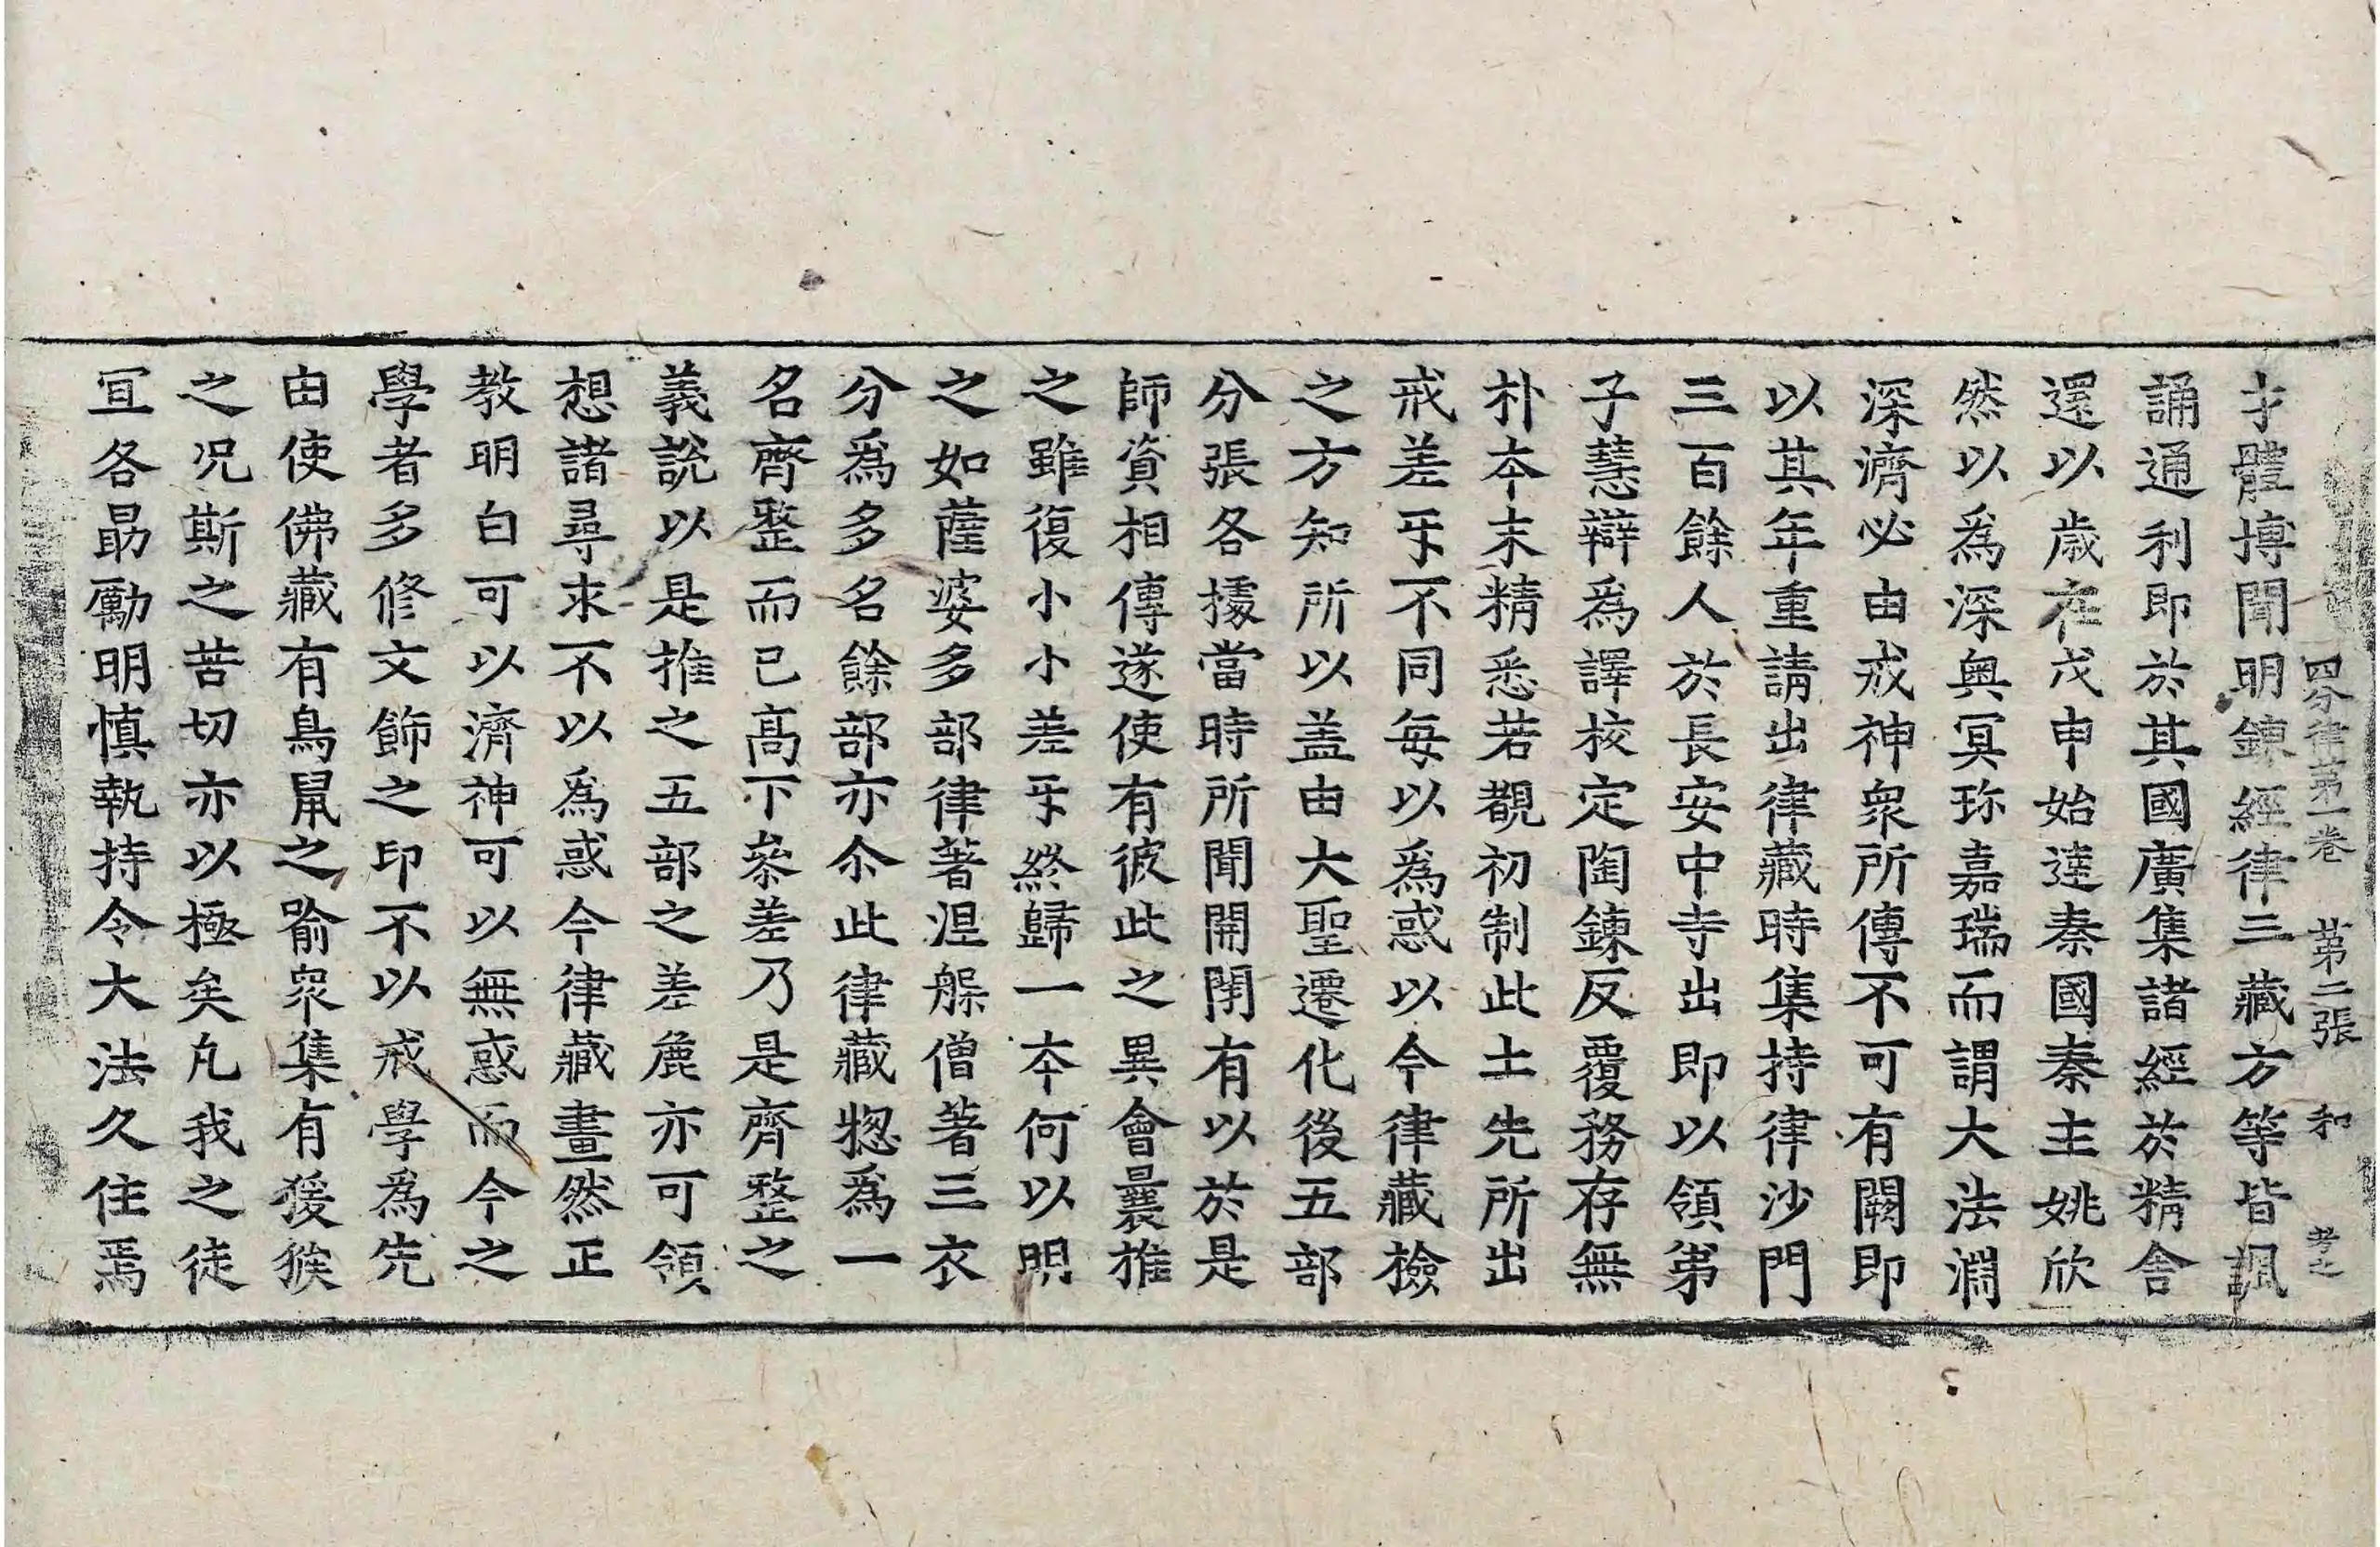 四分律第一卷 第二張 和
才體博聞明鍊經律三藏方等皆諷
誦通利即於其國廣集諸經於精舍
還以歳在戊申始達秦國秦主姚欣
然以為深奥冥珎嘉瑞而謂大法淵
深濟必由戒神衆所傳不可有闕即
以其年重請出律藏時集持律沙門
三百餘人於長安中寺出即以領弟
子慧辯為譯校定陶鍊反覆務存無
朴夲末精悉若覩初制此土先所出
戒差㸦不同毎以為惑以今律藏撿
之方知所以盖由大聖遷化後五部
分張各據當時所聞開閇有以於是
師資相傳遂使有彼此之異會曩推
之雖復小小差㸦終歸一夲何以明
之如薩婆多部律著涅槃僧著三衣
分為多名餘部亦尒此律藏惣為一
名齊整而已髙下叅差乃是齊整之
義說以是推之五部之差麁亦可領
想諸尋求不以為惑今律藏畫然正
教明白可以濟神可以無惑而今之
學者多修文飾之印不以戒學為先
由使佛藏有鳥鼠之喻衆集有猨猴
之况斯之苦切亦以極矣凢我之徒
冝各勗勵明慎執持令大法久住焉